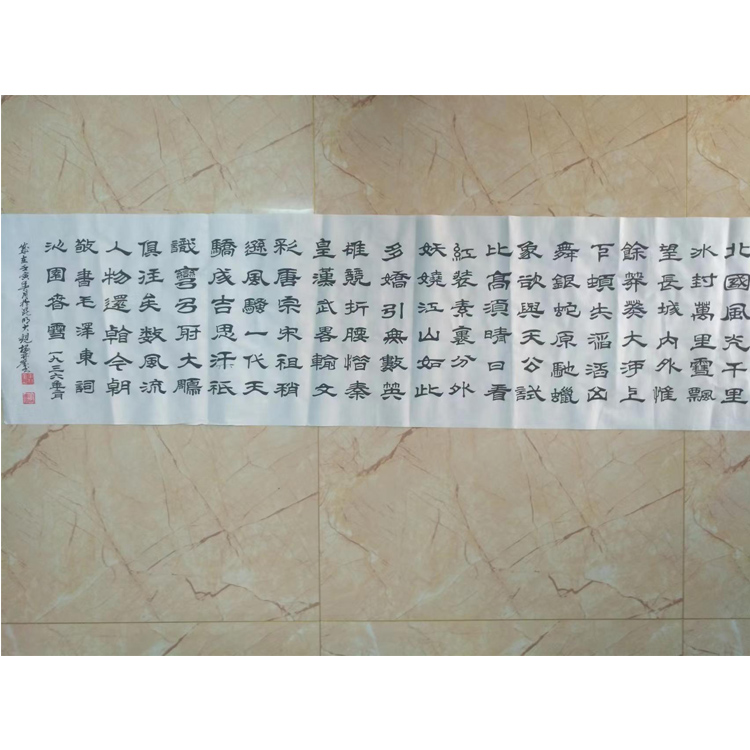 北國風光千里
冰封萬里雪飄
望長城內外惟
餘莽莽大河上
下頓失滔滔山
舞銀蛇原馳蠟
象欲與天公試
比高須晴日看
紅裝素裹分外
妖嬈江山如此
多嬌引無數英
雄競折腰惜秦
皇漢武畧輸文
彩唐宗宋祖稍
遜風騷一代天
驕成吉思汗祇
識彎弓射大鵰
俱往矣數風流
人物還看今朝
敬書毛澤東詞
沁園春雪一九三六年二月
歲在壬寅